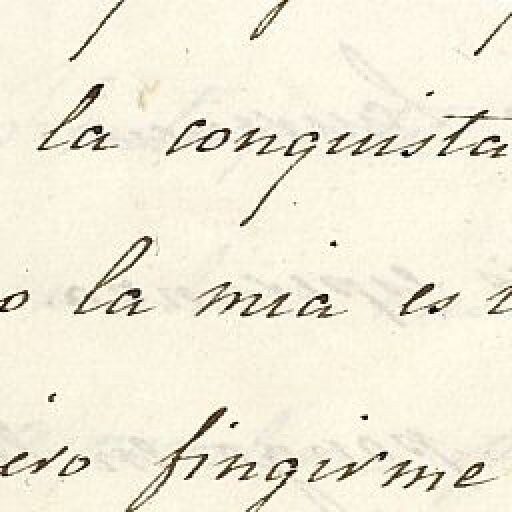 la conquista
o la mia es
ero fingirme